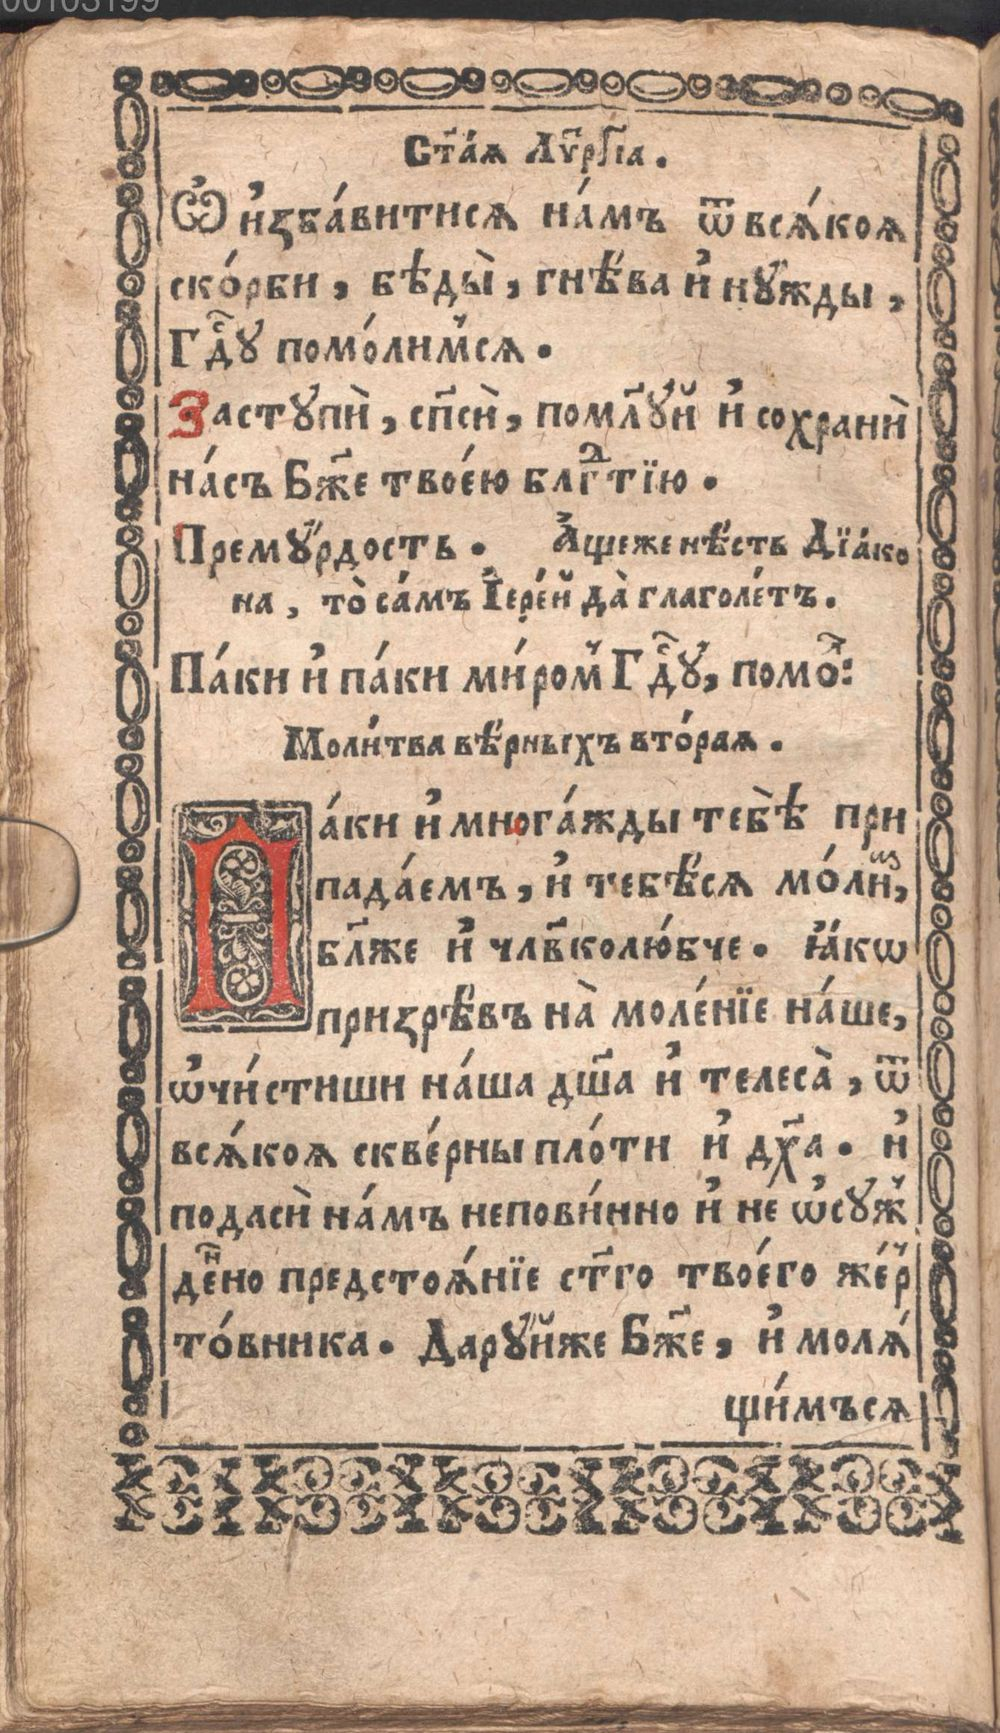 00103199
Ст҃а́ѧ Лѵ҃рг҃іа.
Ѽ и҆збáвитисѧ нáмъ ѿ всѧ́коѧ
скóрби, бѣды̀, гнѣ́ва и҆ нꙋ́жды,
Гдⷭ҇ꙋ помóлимсѧ.
Застꙋпѝ, сп҃сѝ, помл҃ꙋй и҆ сохранѝ
нáсъ Бж҃е твоéю блгⷣтїю.
Премꙋ́рдость. А҆́щеже нѣ́сть Дїáко
на, тò сáмъ І҆ерéй дà глаголéтъ.
Пáки и҆ пáки ми́ром̾ Гдⷭ҇ꙋ, помоⷧ҇:
Моли́тва вѣ́рныхъ втóраѧ.
Пáки и҆ многáжды тебѣ̀ при
падáемъ, и҆ тебѣ́сѧ мóлиⷨ,
бл҃же и҆ члв҃колю́бче. Ꙗ҆́кѡ
призрѣ́въ нà молéнїе нáше,
ѡ҆чи́стиши нáша дш҃а и҆ телесà, ѿ
всѧ́коѧ сквéрны плóти и҆ дх҃а. и҆
подасѝ нáмъ непови́нно и҆ не ѡ҆сꙋж̾
деⷩ҇но предстоѧ́нїе ст҃го твоéго жéр̾
тóвника. Дарꙋ́йже Бж҃е, и҆ молѧ́
щи́мъсѧ